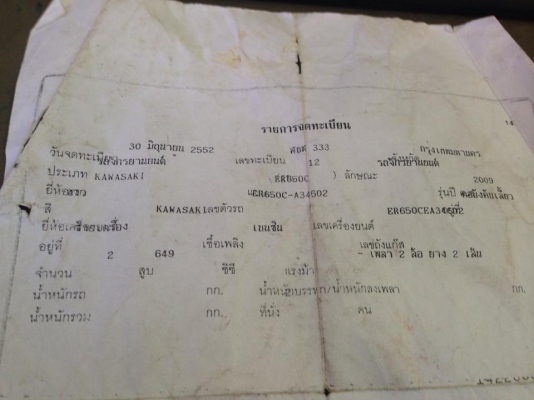 รายการจดทะเบียน
14
วันจดทะเบียน 30 มิถุนายน 2552 เลขทะเบียน 333 กรุงเทพมหานคร
ประเภท รถจักรยานยนต์ 12 รถจักรยานยนต์
ยี่ห้อรถ KAWASAKI ) ลักษณะ 2009
สี ER650C-A34502 รุ่นปี
ยี่ห้อเครื่อง KAWASAKI เลขตัวรถ ER650CEA34
อยู่ที่ เชื้อเพลิง เบนซิน เลขเครื่องยนต์ อยู่ที่
2 649 เลขถังแก๊ส
จำนวน สูบ ซีซี แรงม้า - เพลา 2 ล้อ ยาง 2 เส้น
น้ำหนักรถ กก. น้ำหนักบรรทุก/น้ำหนักลงเพลา กก.
น้ำหนักรวม กก. ที่นั่ง คน